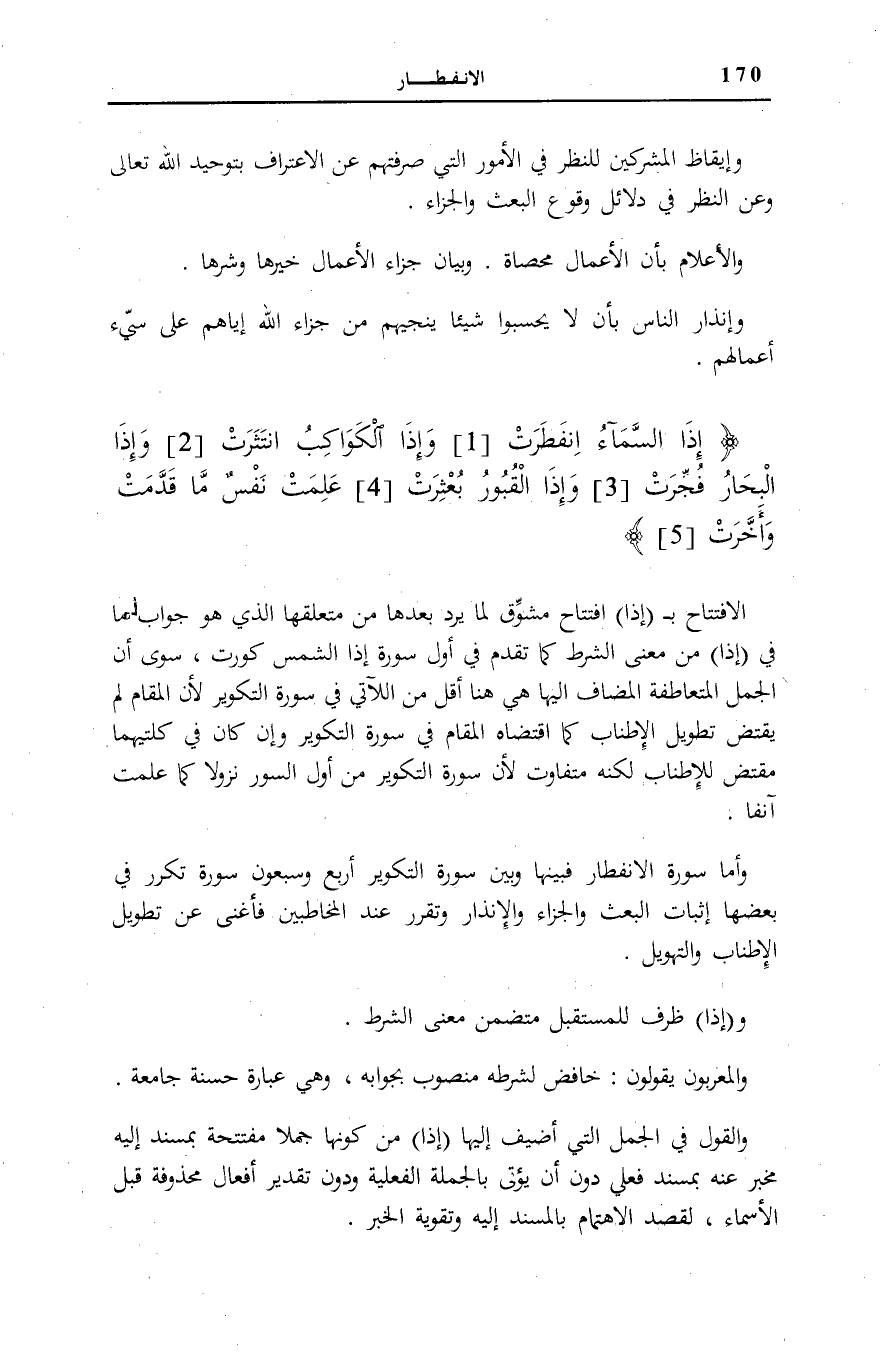 170
الانفطار
وإيقاظ المشركين للنظر في الأمور التي صرفتهم عن الاعتراف بتوحيد الله تعالى
وعن النظر في دلائل وقوع البعث والجزاء .
والأعلام بأن الأعمال محصاة . وبيان جزاء الأعمال خيرها وشرها .
وإنذار الناس بأن لا يحسبوا شيئا ينجيهم من جزاء الله إياهم على سيّء
أعمالهم .
﴿ إِذَا السَّمَآءُ اِنفَطَرَتْ [1] وَإِذَا ٱلْكَوَاكِبُ انتَثَرَتْ [2] وَإِذَا
الْبِحَارُ فُجِّرَتْ [3] وَإِذَا الْقُبُورُ بُعْثِرَتْ [4] عَلِمَتْ نَفْسٌ مَّا قَدَّمَتْ
وَأَخَّرَتْ [5] ﴾
الافتتاح بـ (إذا) افتتاح مشوِّق لما يرد بعدها من متعلقها الذي هو جواب لما
في (إذا) من معنى الشرط كما تقدم في أول سورة إذا الشمس كورت ، سوى أن
الجمل المتعاطفة المضاف اليها هي هنا أقل من اللآتي في سورة التكوير لأن المقام لم
يقتض تطويل الإطناب كما اقتضاه المقام في سورة التكوير وإن كان في كلتيهما
مقتض للإطناب لكنه متفاوت لأن سورة التكوير من أول السور نزولا كما علمت
آنفا .
وأما سورة الانفطار فبينها وبين سورة التكوير أربع وسبعون سورة تكرر في
بعضها إثبات البعث والجزاء والإنذار وتقرر عند المخاطبين فأغنى عن تطويل
الإطناب والتهويل .
و(إذا) ظرف للمستقبل متضمن معنى الشرط .
والمعربون يقولون : خافض لشرطه منصوب بجوابه ، وهي عبارة حسنة جامعة .
والقول في الجمل التي أضيف إليها (إذا) من كونها جملا مفتتحة بمسند إليه
مخبر عنه بمسند فعلي دون أن يؤتى بالجملة الفعلية ودون تقدير أفعال محذوفة قبل
الأسماء ، لقصد الاهتمام بالمسند إليه وتقوية الخبر .